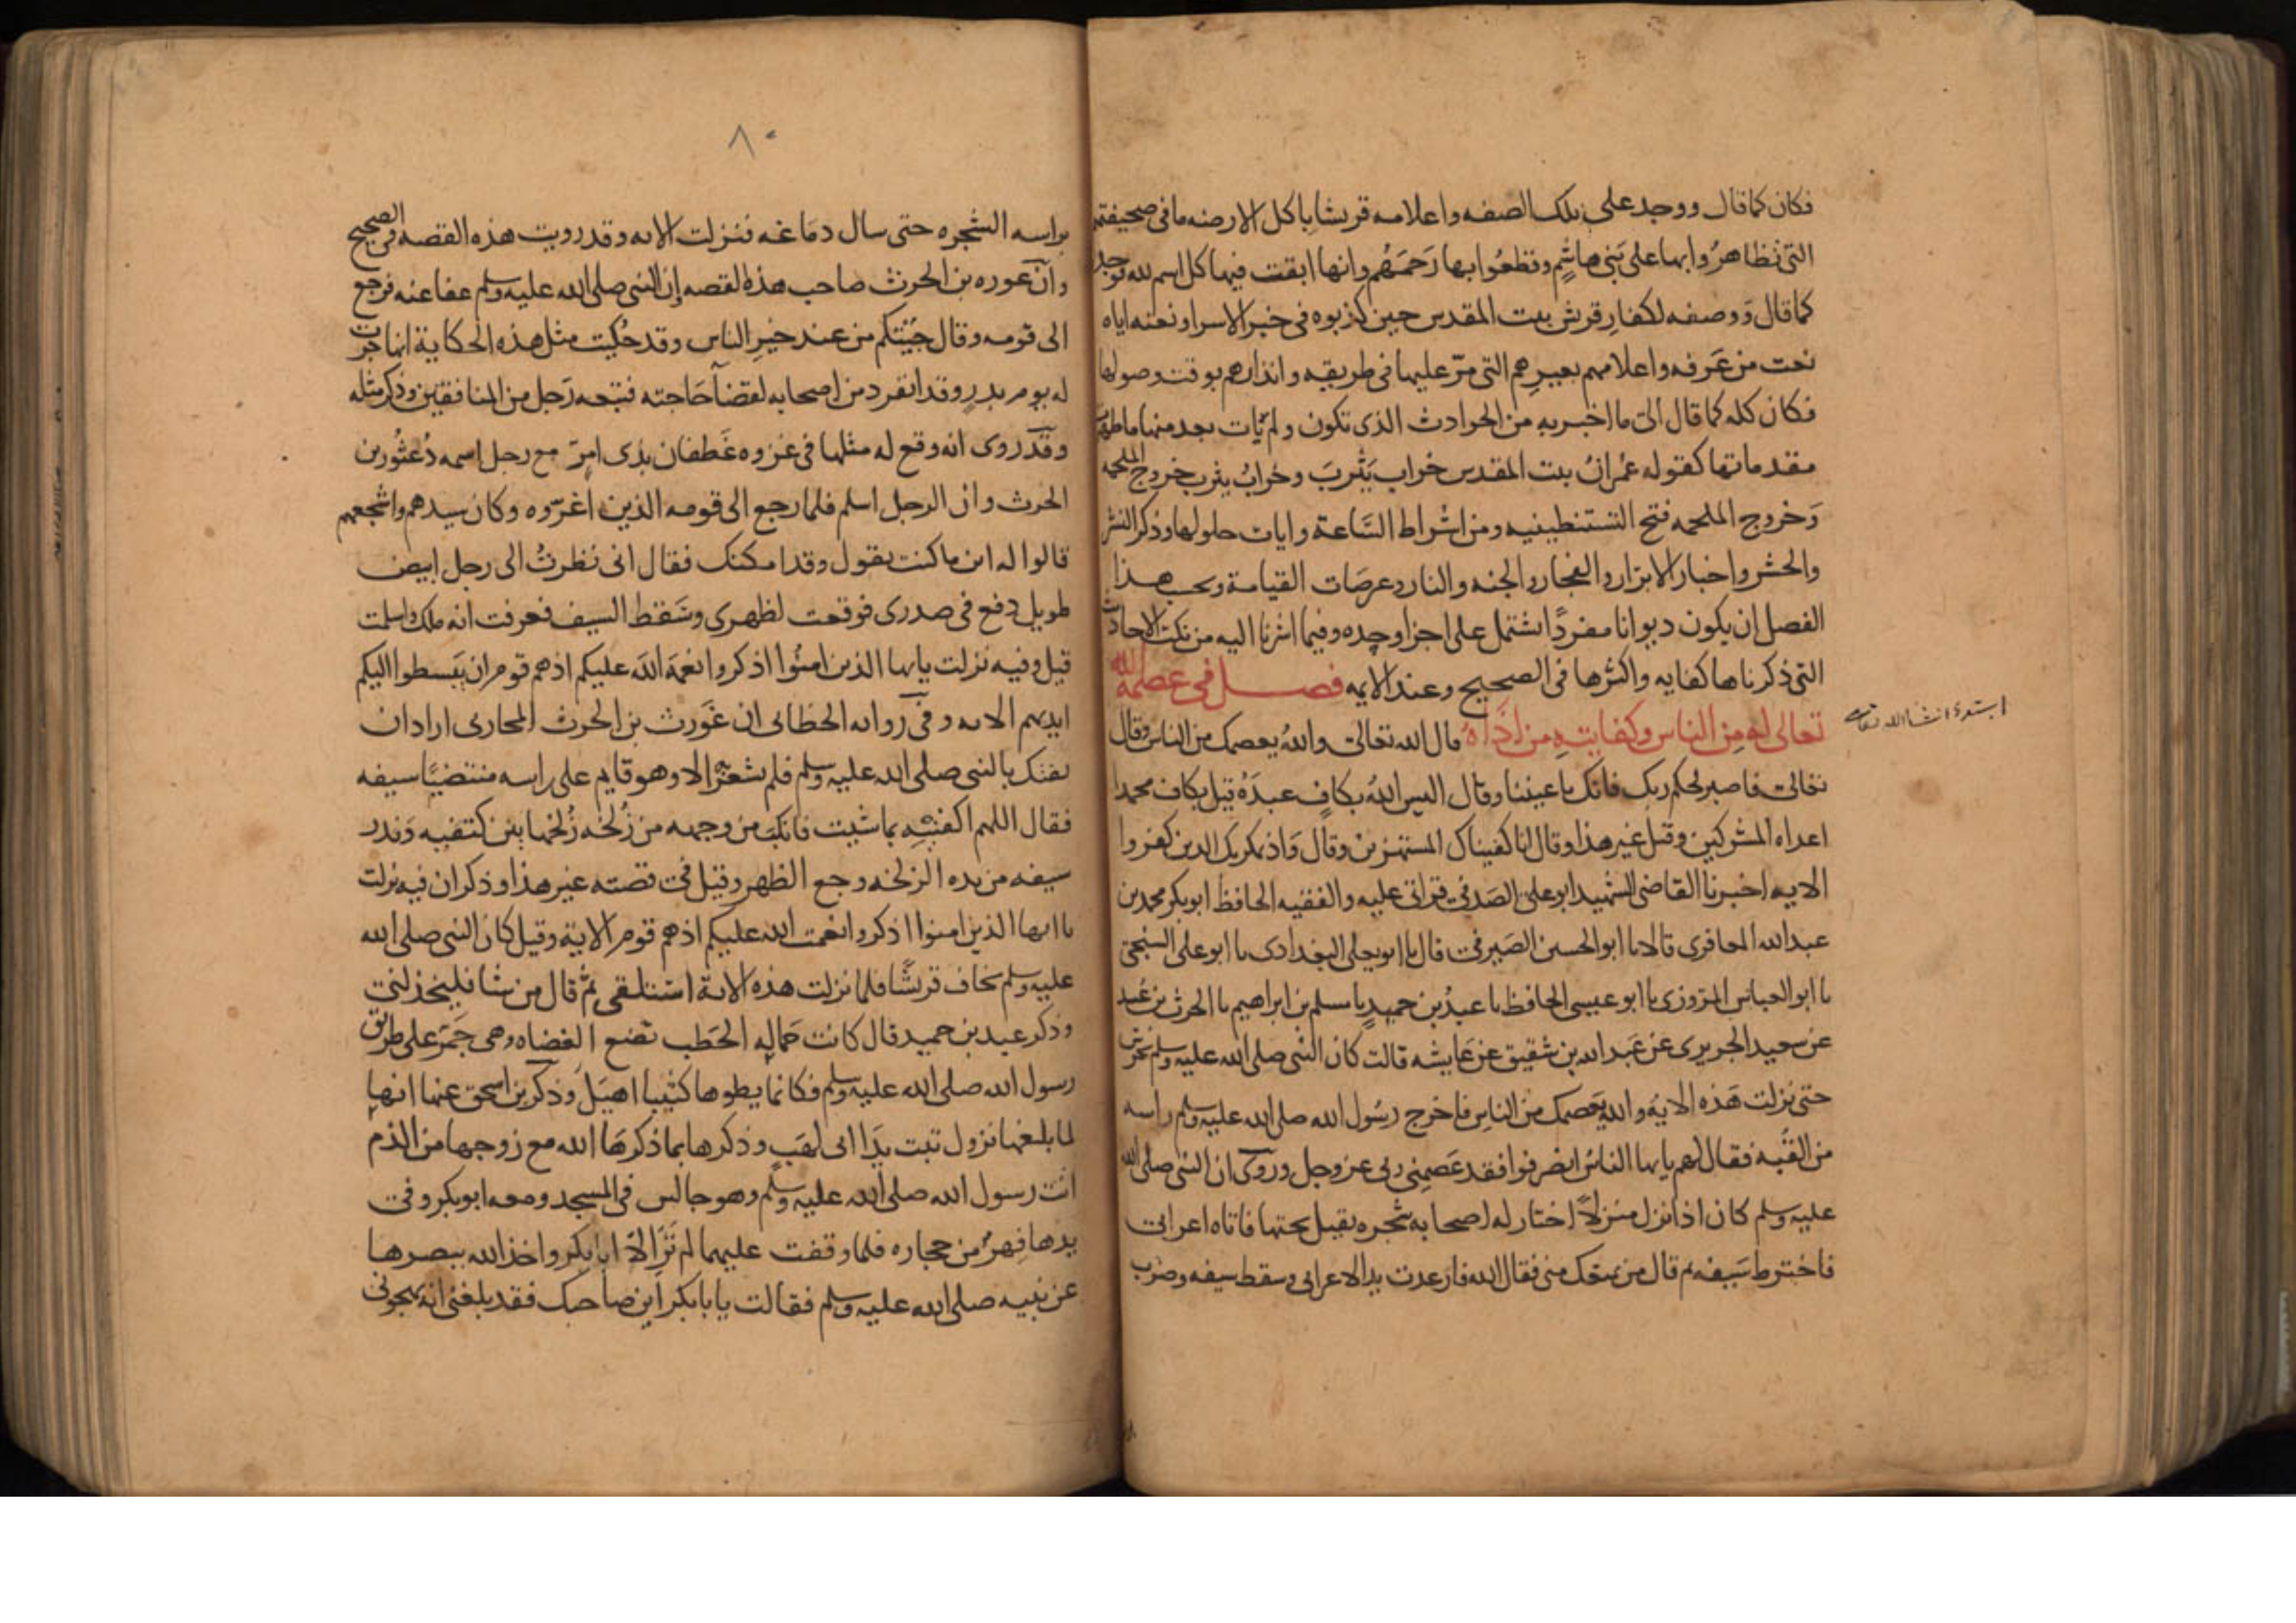 فكان كما قال ووجد على تلك الصفه واعلامه قريشا باكل الارضه ما فى صحيفتهم
التى تظاهرُوا بها على بَنى هاشمٍ وقطعُوا بها رَحمَهُم وانها ابقت فيها كل اسم لله فوجد
كما قال وَوصفه لكفارِ قريش بيت المقدس حين كذبوه فى خبر الاسرا ونعته اياه
نعت من عَرفه واعلامهم بعيرِهم التى مرّ عليها فى طريقه وانذارهم بوقت وصولها
فكان كله كما قال الى ما اخبر به من الحوادث الذى تكون ولم يات بعد منها ما ظهرت
مقدماتها كقوله عُمرانُ بيت المقدس خراب يَثربَ وخرابُ يثرب خروج الملحمه
وَخروج الملحمه فتح القسطنطينيه ومن اشراط السَّاعة وايات حلولها وذكر النشر
والحشر واخبار الابرار والفجار والجنه والنار وعرصَات القيامة وبحسب هذا
الفصل ان يكون ديوانا مفردًا يشتمل على اجزا وحده وفيما اشرنا اليه من نكت الاحاديث
التى ذكرناها كفايه واكثرها فى الصحيح وعند الايمه فصل فى عصمة الله
تعالى له من الناس وكفايتهِ من اذاهُ قال الله تعالى واللهُ يعصمك من الناس وقال
ابتدئ انشا الله تعالى
تعالى فاصبر لحكم ربك فانك باعيننا وقال اليس اللهُ بكافٍ عبدَهُ قيل بكاف محمدا
اعداه المشركين وقيل غير هذا وقال انا كفيناك المستهزين وقال وَاذ يمكر بك الدين كفروا
الايه اخبرنا القاضى الشهيد ابو على الصَدفى قراتى عليه والفقيه الحافظ ابو بكر محمد بن
عبد الله المعافرى قالا نا ابو الحسين الصَيرفى قال نا ابو يعلى البغدادى نا ابو على السنجى
نا ابو العباس المَروزى نا ابو عيسى الحافظ نا عبدُ بن حميدٍ نا مسلم بن ابراهيم نا الحرث بن عُبيد
عن سعيد الجريرى عن عَبد الله بن شقيق عن عَايشه قالت كان النبى صلى الله عليه وسلم يحرس
حتى نزلت هَذه الايةُ والله يَعصمك من الناسِ فاخرج رسُول الله صلى الله عليه وسلم راسه
من القُبه فقال لهم يايها الناسُ انصرفوا فقد عَصمِنى ربى عز وجل وروى ان النبى صلى الله
عليه وسلم كان اذا نزل منزلاً اختار له اصحابه شجره يقيل تحتها فاتاه اعرابى
فاخترط سَيفه ثم قال من يمنعك منى فقال الله فارعدت يد الاعرابى وسقط سيفه وضرب
٨٠
براسه الشجره حتى سال دمَاغه فنزلت الايه وقد رويت هذه القصه فى الصحيح
وانّ غوره بن الحرث صاحب هذه القصه اِن النبى صلى الله عليه وسلم عفا عنه فرجع
الى قومه وقال جيتكم من عند خيرِ الناس وقد حُكيت مثل هذه الحكاية انها جرت
له يوم بدرٍ وقد انفرد من اصحابه لقضآ حَاجته فتبعه رَجل من المنافقين وذكر مثله
وقد روى انه وقع له مثلها فى غزوه غَطفان بذى امرّ مع رجل اسمه دُعثُور بن
الحرث وان الرجل اسلم فلما رجع الى قومه الذين اغرّوه وكان سيدهم واشجعهم
قالوا له اين ما كنت تقول وقد امكنك فقال انى نظرتُ الى رجل ابيض
طويل دفع فى صدرى فوقعت لظهرى وسَقط السيف فعرفت انه ملك واسلمت
قيل وفيه نزلت يايها الذين امنُوا اذكروا نعمَة اللهَ عليكم اذ هم قوم ان يَبسطوا اليكم
ايديهم الايه وفى روايه الخطابى ان غَورث بن الحرث المحاربى اراد ان
يفتك بالنبى صلى الله عليه وسلم فلم يشعُر الا وهو قايم على راسه منتضيًا سيفه
فقال اللهم اكفنيهِ بما شيت فانكبّ من وجهه من زُلخه زُلخها بين كتفيه وَندر
سيفه من يده الزلخه وجع الظهر وقيل فى قصته غير هذا وذكر ان فيه نزلت
يا ايها الذين امنوا اذكروا نعمت الله عليكم اذ هم قوم الاية وقيل كان النبى صلى الله
عليه وسلم يخاف قريشًا فلما نزلت هذه الاية استلقى ثم قال من شا فليخذلنى
وذكر عبد بن حميد قال كانت حَمالة الحَطب تضع العضاه وهى جَمرٌ على طريق
رسول الله صلى الله عليه وسلم فكانما يطوها كثيبا اهيَل وذكر بن اسحق عنها انها
لما بلغها نزول تبت يَدَا ابى لهَبٍ وذكرها بما ذكرهَا الله مع زوجها من الذم
اتت رسول الله صلى الله عليه وسلم وهو جالس فى المسجد ومعه ابو بكر وفى
يدها فِهرٌ من حجاره فلما وقفت عليهما لم تَرَ الاّ ابا بكر واخذ الله ببصرها
عن نبيه صلى الله عليه وسلم فقالت يا با بكر اين صاحبك فقد بلغنى انه يهجونى